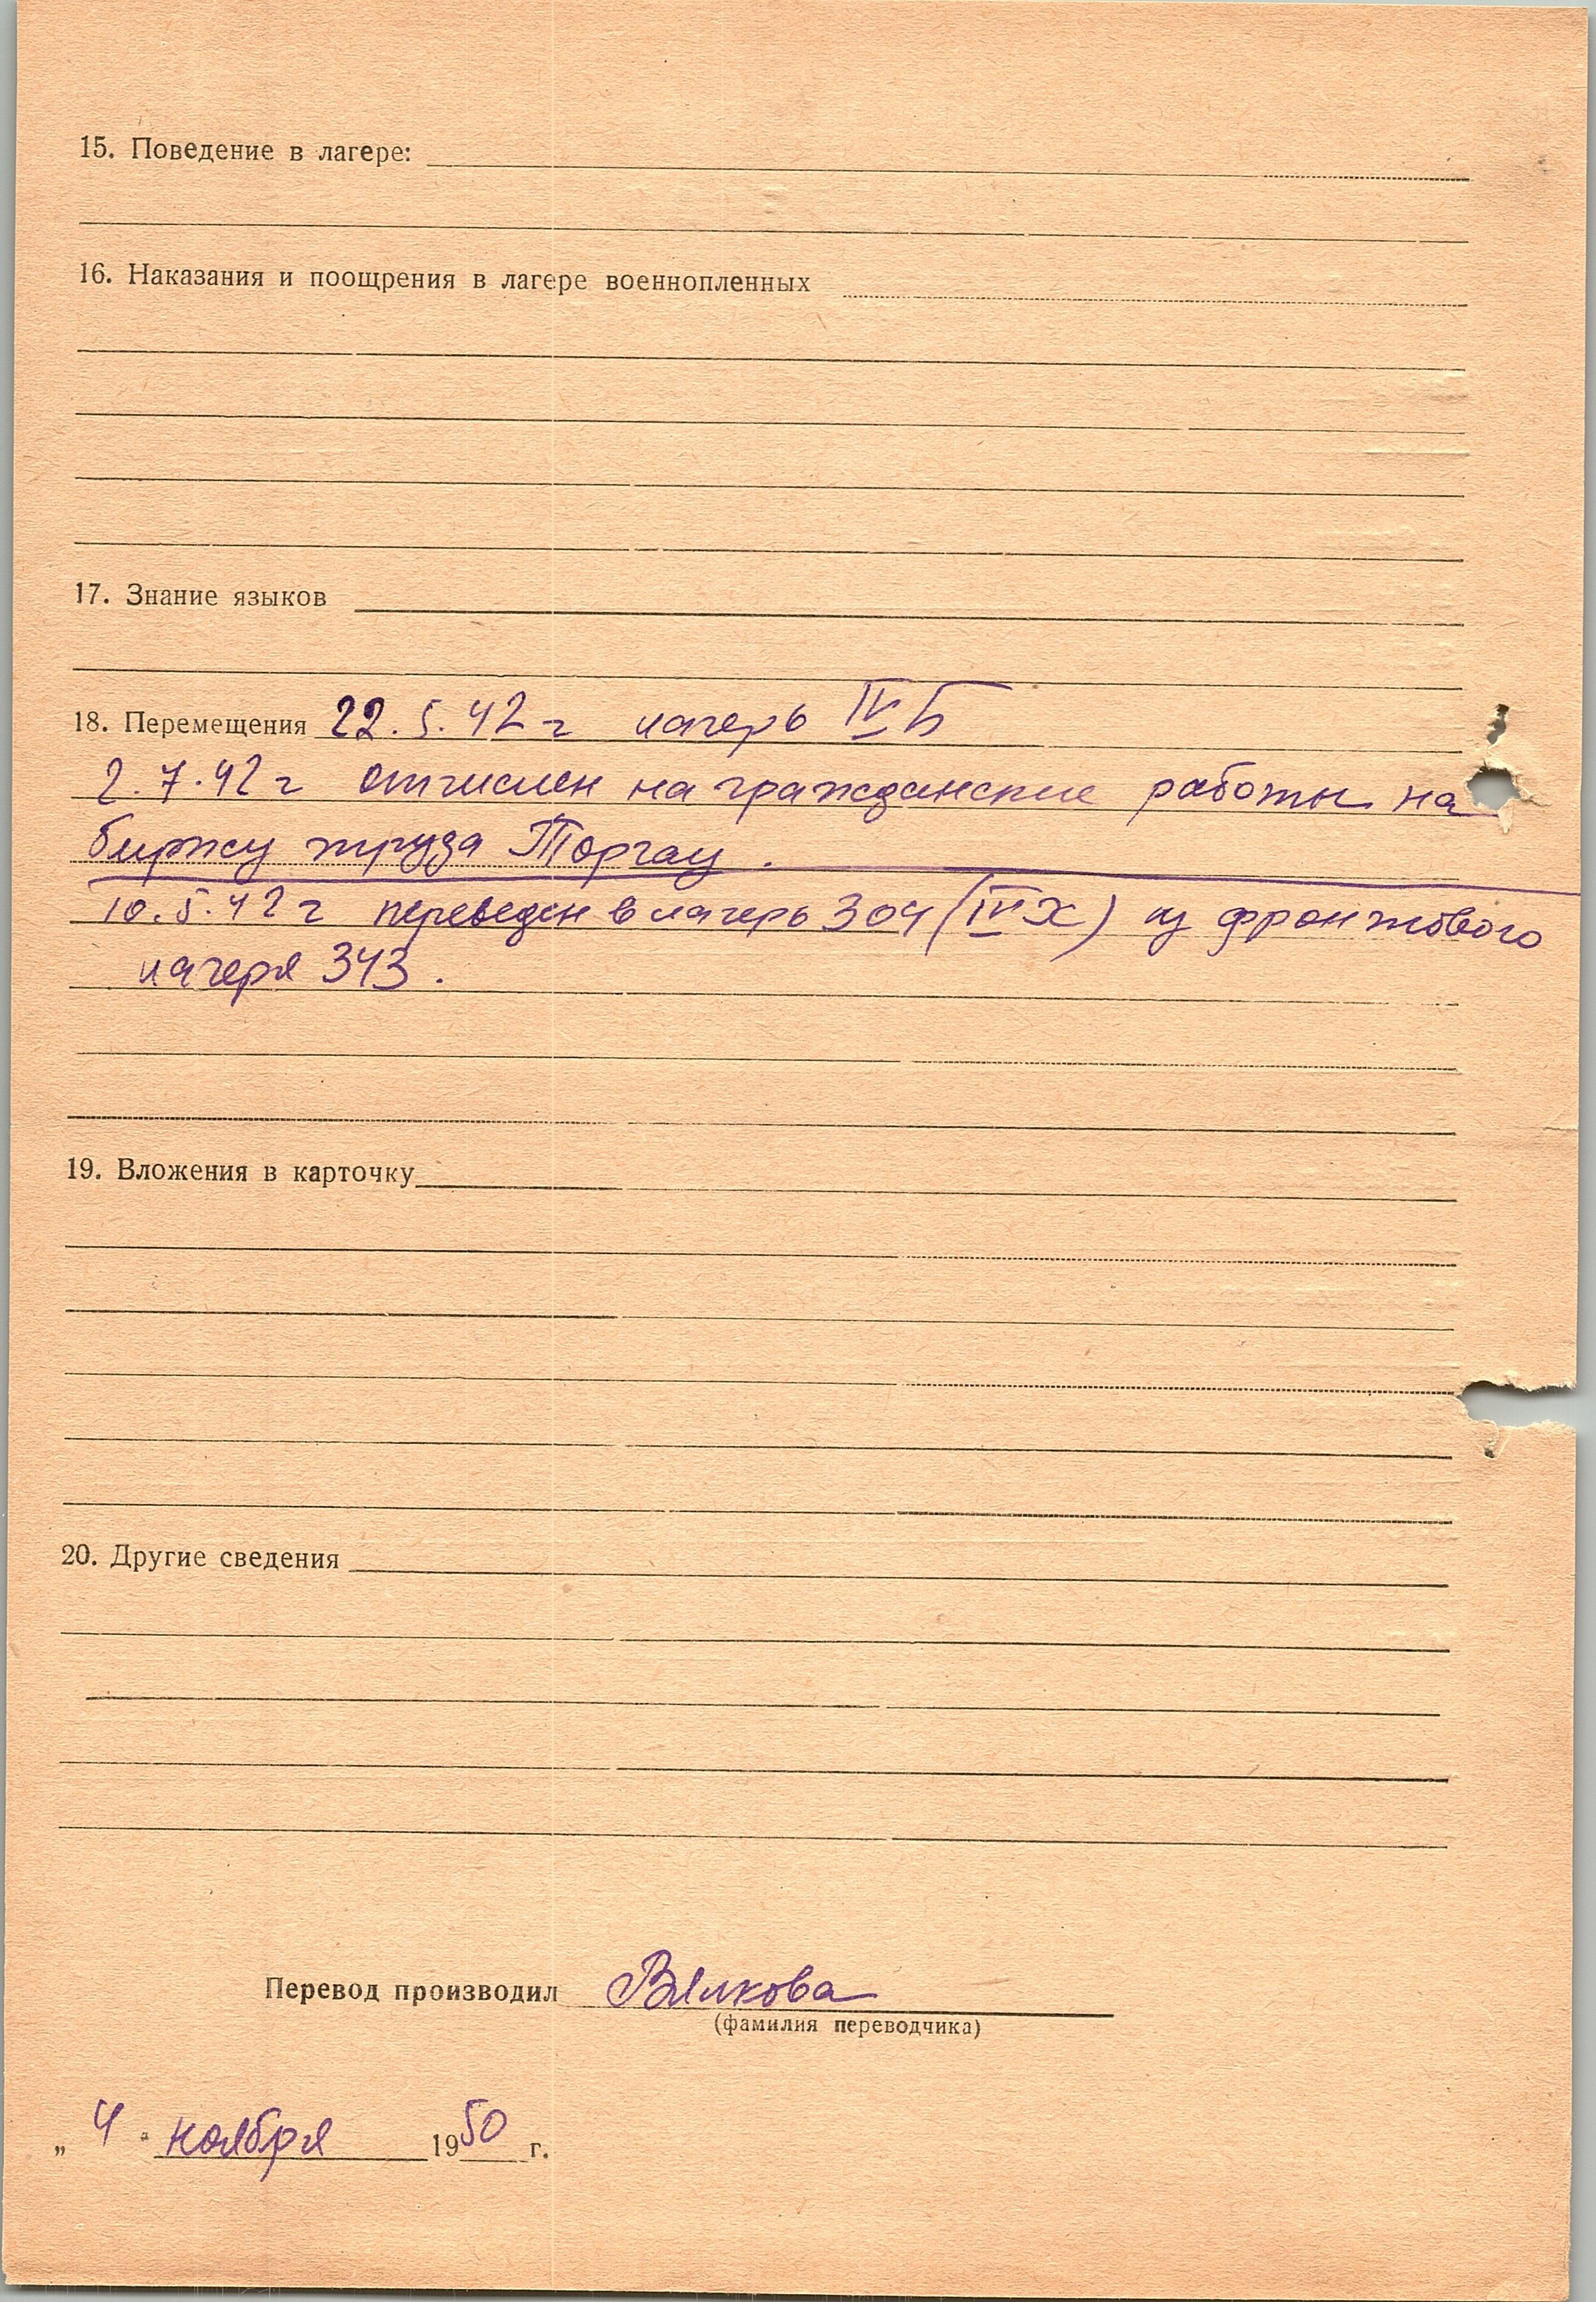 15. Поведение в лагере:
16. Наказания и поощрения в лагере военнопленных
17. Знание языков
18. Перемещения 22.5.42 г лагерь IV Б
2.7.42 г отчислен на гражданские работы на
биржу труда Торгау.
10.5.42 г переведен в лагерь 304 (IV Х) из фронтового
лагеря 343.
19. Вложения в карточку
20. Другие сведения
Перевод производил Вялкова
(фамилия переводчика)
„ 4 " ноября 1950 г.